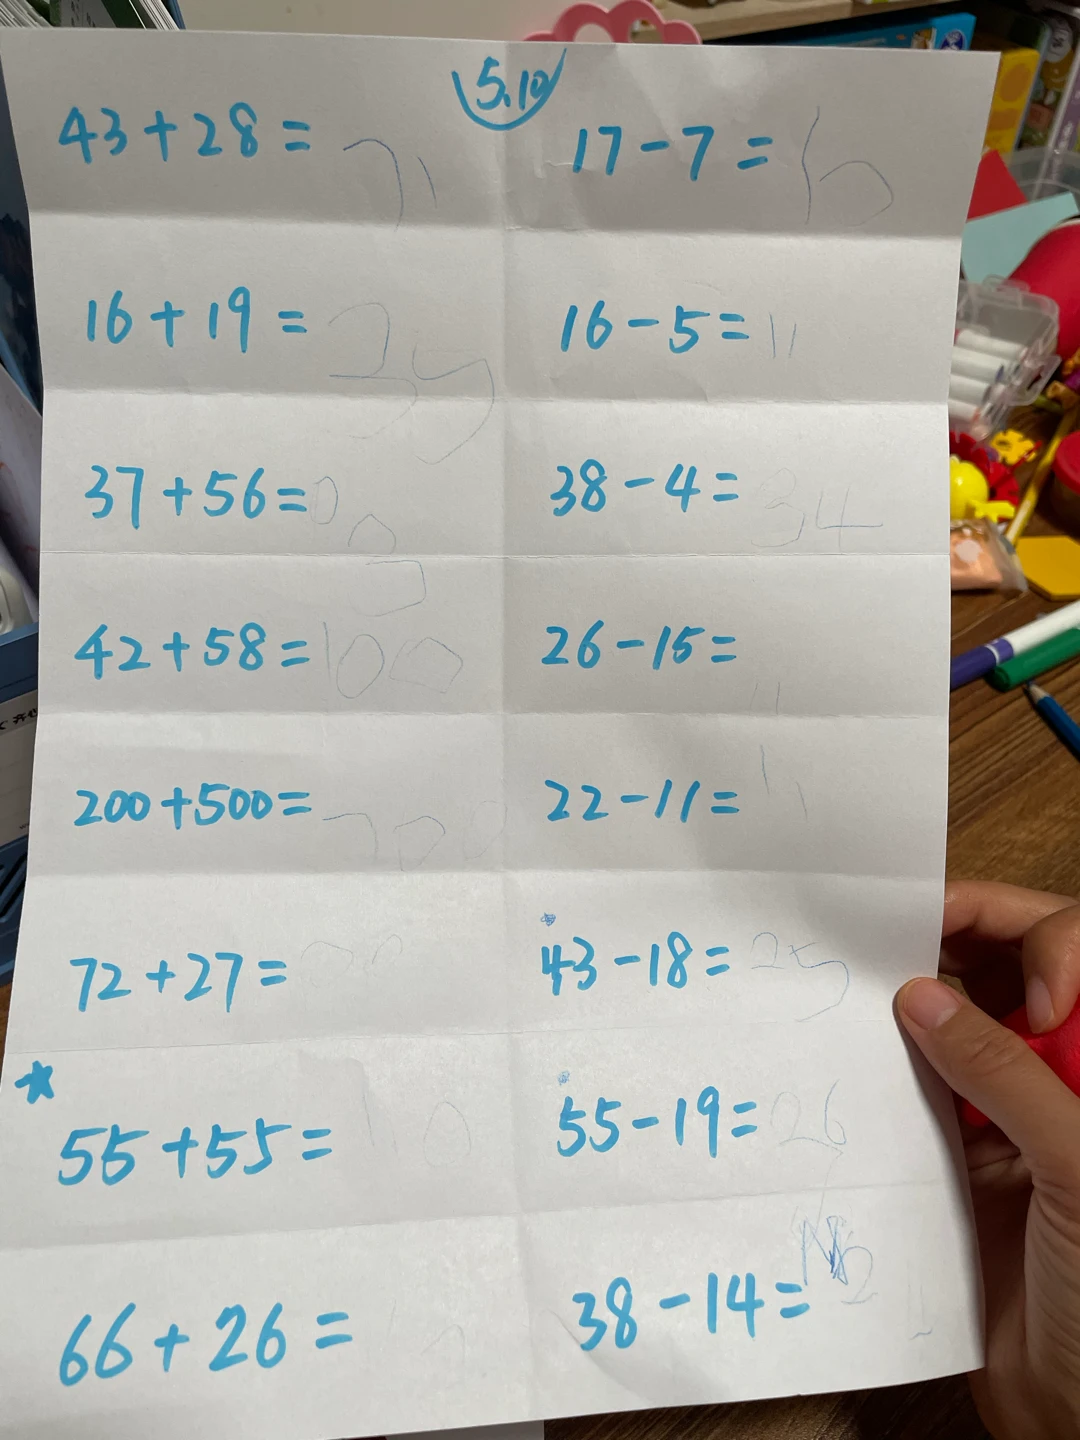 5.10
43+28= 71
17-7= 10
16+19= 35
16-5= 11
37+56=
38-4= 34
42+58= 100
26-15= 11
200+500= 700
22-11= 11
72+27=
43-18= 25
55+55= 110
55-19= 26
66+26=
38-14=